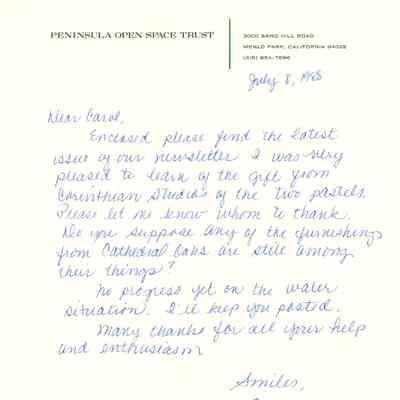 PENINSULA OPEN SPACE TRUST
3000 SAND HILL ROAD
MENLO PARK, CALIFORNIA 94025
(415) 854-7696
July 8, 1988
Dear Carol,
Enclosed please find the latest
issue of our newsletter. I was very
pleased to learn of the gift from
Corinthian Studios of the two pastels.
Please let me know whom to thank.
Do you suppose any of the furnishings
from Cathedral Oaks are still among
their things?
No progress yet on the water
situation. I'll keep you posted.
Many thanks for all your help
and enthusiasm
Smiles,